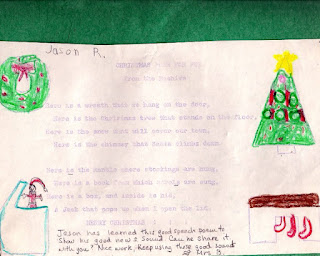 Jason R.
CHRISTMAS FOR
from the
Here is a wreath that we hang on the door,
Here is the Christmas tree that stands on the floor,
Here is the snow that will cover our town,
Here is the chimney that Santa climbs down.
Here is the mantle where stockings are hung,
Here is a book from which carols are sung,
Here is a box, and inside is hid,
A Jack that pops up when I open the lid.
MERRY CHRISTMAS
Jason has learned this good speech poem to
show his good new S Sound. Can he share it
with you? Nice work. Keep using those good sounds
Mrs. B.